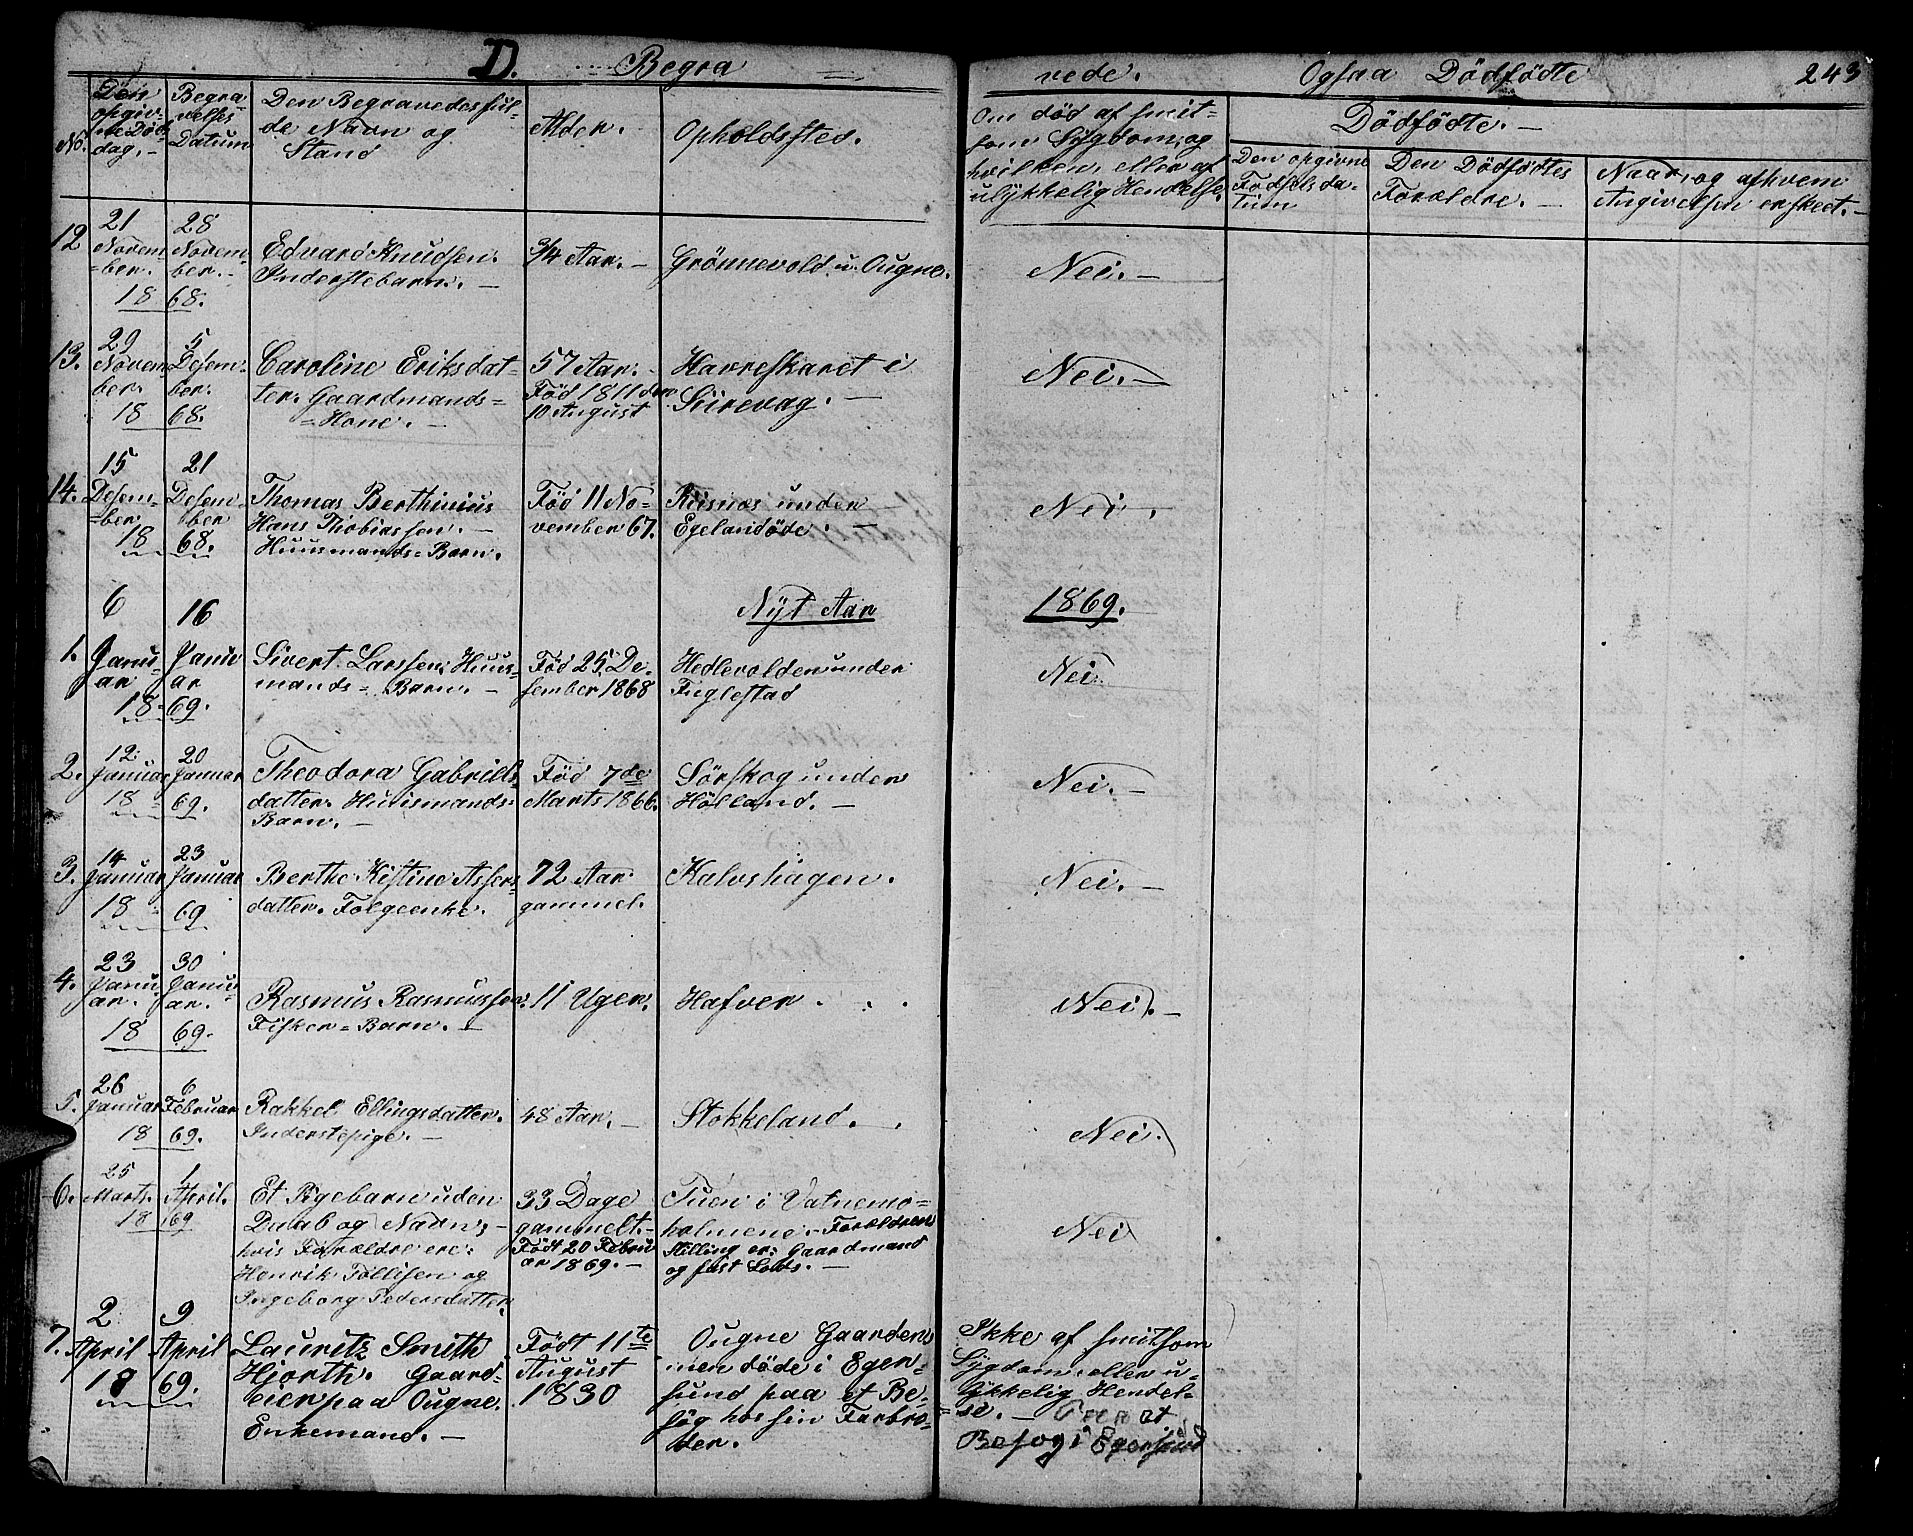 D. Begra
vede. Ogsaa Dödfödte 243
No.
Den
opgiv-
ne Död
dag. -
Begra
velses
Datum
Den Begravedes ful-
de Navn og
Stand
Alder. -
Opholdssted.
Om död af smit-
som Sygdom, og
hvilken, eller af
ulykkelig Hendelse.
Dödfödte. -
Den opgivne
Födselsda-
tum
Den Dödfödtes
Forældre. -
Naar, og af hvem
Angivelsen er skeet. -
12
21
Novem
-ber. -
18
28
Novem-
ber. -
68.
Edvard Knudsen.
Inderstebarn. -
3/4 Aar. -
Grönnevold u. Ougne.
Nei. -
13.
29
Novem
ber.
18
5
Desem-
ber.
68.
Caroline Eriksdat-
ter. Gaardmands-
-Kone. -
57 Aar. -
Föd 1811 den
10 August
Havreskaret i
Siirevag. -
Nei. -
14.
15
Desem-
-ber
18
21
Desem-
bber
68.
Thomas Berthinius
Hans Thobiassen. -
Huusmands-Barn.
Föd 11 No-
vember 67.
Riisnæs under
Egelandöde. -
Nei.
Nÿt Aar
1869.
1.
6
Janu-
ar
18
16
Janu
ar
69.
Sivert Larssen. Huus-
mands- Barn. -
Föd 25 De-
sember 1868
Hedlevolden under
Fuglestad
Nei.
2.
12
Januar
18
20
Januar
69.
Theodora Gabriels
datter. Huusmands-
Barn. -
Föd 7de
Marts 1866.
Sörskog under
Hölland. -
Nei. -
3.
14
Januar
18
23
Januar
69
Berthe Kistine Assers-
datter. Folgeenke.
72 Aar
gammel.
Kalvshagen.
Nei. -
4.
23
Janu
ar.
18
30
Janu-
ar.
69.
Rasmus Rasmussen.
Fisker-Barn. -
11 Uger.
Hafver . . .
Nei. -
5.
26
Januar
18
6
Februar
69.
Rakkel Ellingsdatter.
Inderstepige. -
48 Aar. -
Stokkeland. .
Nei.
6.
25
Marts.
18
1
April.
69
Et Pigebarn uden
Daab og Navn, -
hvis Forældre ere:
Henrik Tollisen og
Ingeborg Pedersdatter.
33 Dage
gammelt. -
Födt 20 Febru
ar 1869. -
Tuen i Vatnemo-
holmene. - Forældren
Stilling er: Gaardmand
og fast Lods. -
Nei
7.
2
April
18
9
April
69.
Lauritz Smith
Hjorth. Gaard-
eier paa Ougne.
Enkemand. -
Födt 11te
August
1830
Ougne Gaarden,
men döde i Eger-
sund paa et Be-
sög hos sin Farbro-
der.
Ikke af smitsom
Sygdom, eller u-
lykkelig Hendel-
se. - et
Besøg i Egersund